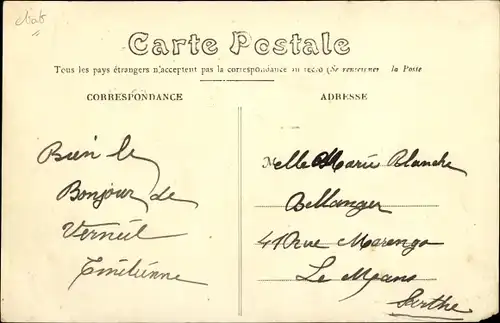 Carte Postale
Tous les pays étrangers n'acceptent pas la correspondance au recto (Se renseigner à la Poste
CORRESPONDANCE
ADRESSE
Bien le
Bonjour de
Verneil
Melle Marie Blanche
Bellanger
41 Rue Marengo
Le Mans
Sarthe